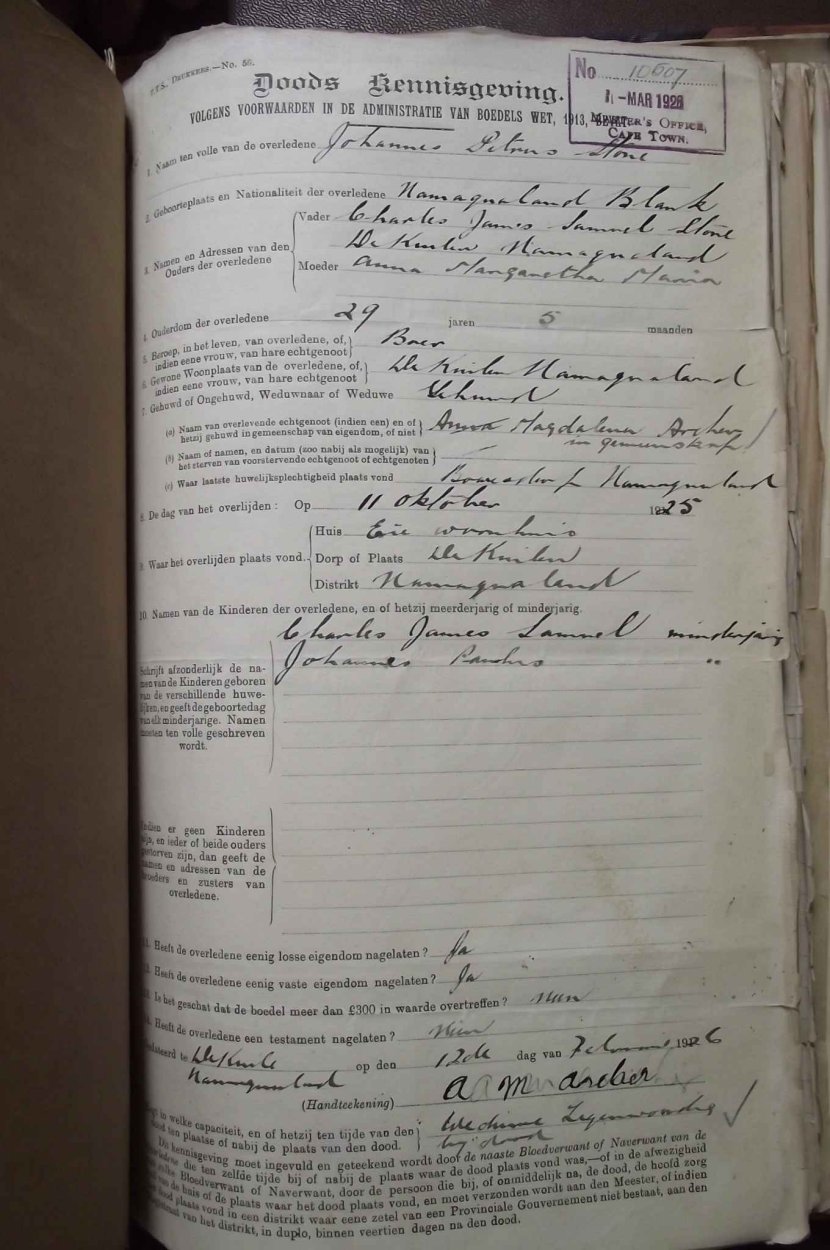 T.T.S. DRUKKERS.—No. 56.
No 10607
11 -MAR 1926
MASTER'S OFFICE,
CAPE TOWN.
Doods Kennisgeving.
VOLGENS VOORWAARDEN IN DE ADMINISTRATIE VAN BOEDELS WET, 1913, BEVAT
1. Naam ten volle van de overledene Johannes Petrus Stone
2. Geboorteplaats en Nationaliteit der overledene Namaqualand Blank
3. Namen en Adressen van den Ouders der overledene
Vader Charles James Samuel Stone
De Kuilen Namaqualand
Moeder Anna Margaretha Maria
4. Ouderdom der overledene 29 jaren 5 maanden
5. Beroep, in het leven, van overledene, of, indien eene vrouw, van hare echtgenoot Boer
6. Gewone Woonplaats van de overledene, of, indien eene vrouw, van hare echtgenoot De Kuilen Namaqualand
7. Gehuwd of Ongehuwd, Weduwnaar of Weduwe Gehuwd
(a) Naam van overlevende echtgenoot (indien een) en of hetzij gehuwd in gemeenschap van eigendom, of niet Anna Magdalena Archer
in gemeenskap
(b) Naam of namen, en datum (zoo nabij als mogelijk) van het sterven van voorstervende echtgenoot of echtgenoten —
(c) Waar laatste huwelijksplechtigheid plaats vond Bowesdorp Namaqualand
8. De dag van het overlijden : Op 11 Oktober 1925
9. Waar het overlijden plaats vond.
Huis Eie woonhuis
Dorp of Plaats De Kuilen
Distrikt Namaqualand
10. Namen van de Kinderen der overledene, en of hetzij meerderjarig of minderjarig.
Charles James Samuel minderjarig
Johannes "
Schrijft afzonderlijk de na-
men van de Kinderen geboren
van de verschillende huwe-
lijken, en geeft de geboortedag
van elk minderjarige. Namen
moeten ten volle geschreven
wordt.
Indien er geen Kinderen
zijn, en ieder of beide ouders
gestorven zijn, dan geeft de
namen en adressen van de
broeders en zusters van
overledene.
11. Heeft de overledene eenig losse eigendom nagelaten ? Ja
12. Heeft de overledene eenig vaste eigendom nagelaten ? Ja
13. Is het geschat dat de boedel meer dan £300 in waarde overtreffen ? Neen
14. Heeft de overledene een testament nagelaten ? Neen
Gedateerd te De Kuile op den 12de dag van Februarie 1926
Namaqualand
(Handteekening) A M Archer
welke capaciteit, en of hetzij ten tijde van den dood ten plaatse of nabij de plaats van den dood. Weduwe Tegenwoordig
by dood
De kennisgeving moet ingevuld en geteekend wordt door de naaste Bloedverwant of Naverwant van de
overledene die ten zelfde tijde bij of nabij de plaats waar de dood plaats vond was,—of in de afwezigheid
van zulke Bloedverwant of Naverwant, door de persoon die bij, of onmiddelijk na, de dood, de hoofd zorg
van de huis of de plaats waar het dood plaats vond, en moet verzonden wordt aan den Meester, of indien
de dood plaats vond in een distrikt waar eene zetel van een Provinciale Gouvernement niet bestaat, aan den
Magistraat van het distrikt, in duplo, binnen veertien dagen na den dood.